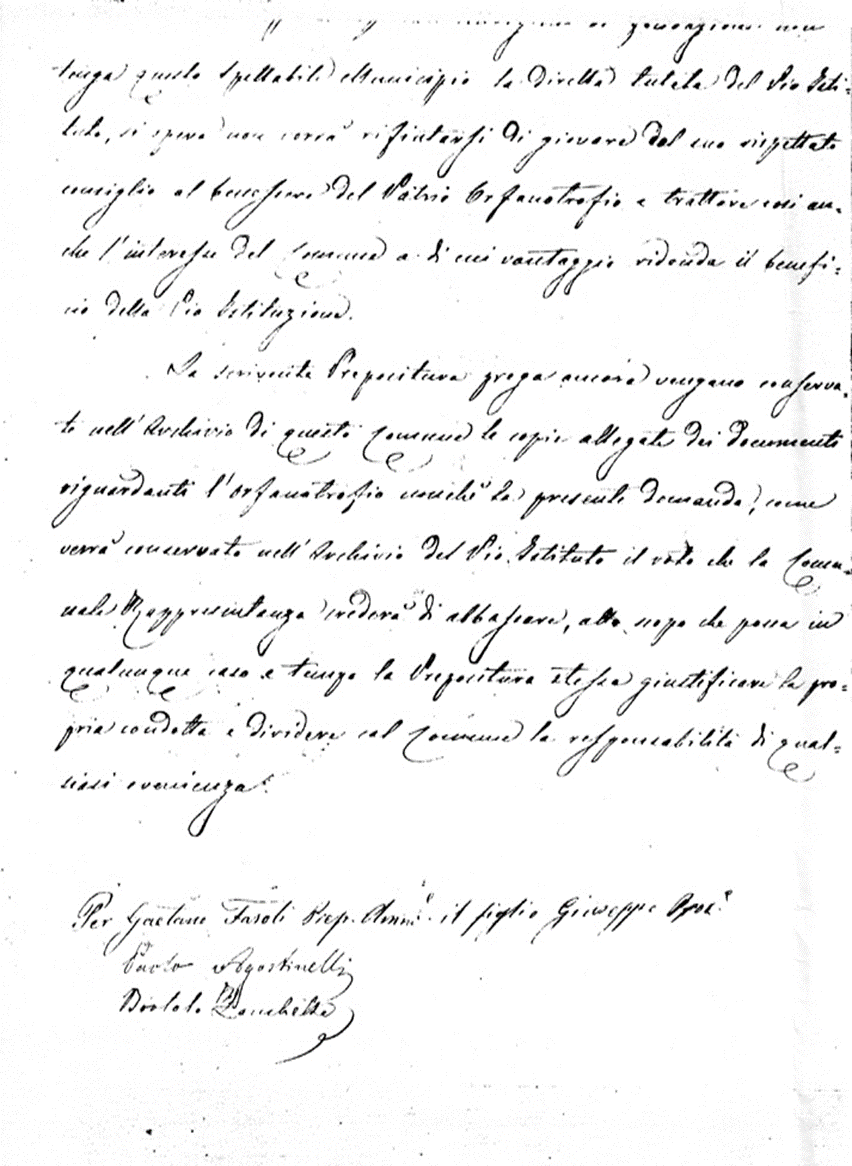 non
tenga questo Spettabile Municipio la diretta tutela del Pio Isti=
tuto, si spera non vorrà rifiutarsi di giovare del suo rispettato
consiglio al benessere del Patrio Orfanotrofio e trattare così an=
che l'interesse del Comune a di cui vantaggio ridonda il benefi=
cio della Pia Istituzione.
La scrivente Prepositura prega ancora vengano conserva=
te nell'Archivio di questo Comune le copie allegate dei documenti
riguardanti l'orfanotrofio nonchè la presente domanda, come
verrà conservato nell'Archivio del Pio Istituto il voto che la Comu=
nale Rappresentanza crederà di abbassare, allo uopo che possa in
qualunque caso e tempo la Prepositura stessa giustificare la pro=
pria condotta e dividere col Comune la responsabilità di qual=
siasi evenienza.
Per Gaetano Fasoli Prep. Ammi. il figlio Giuseppe
Paolo Agostinelli
Bortolo